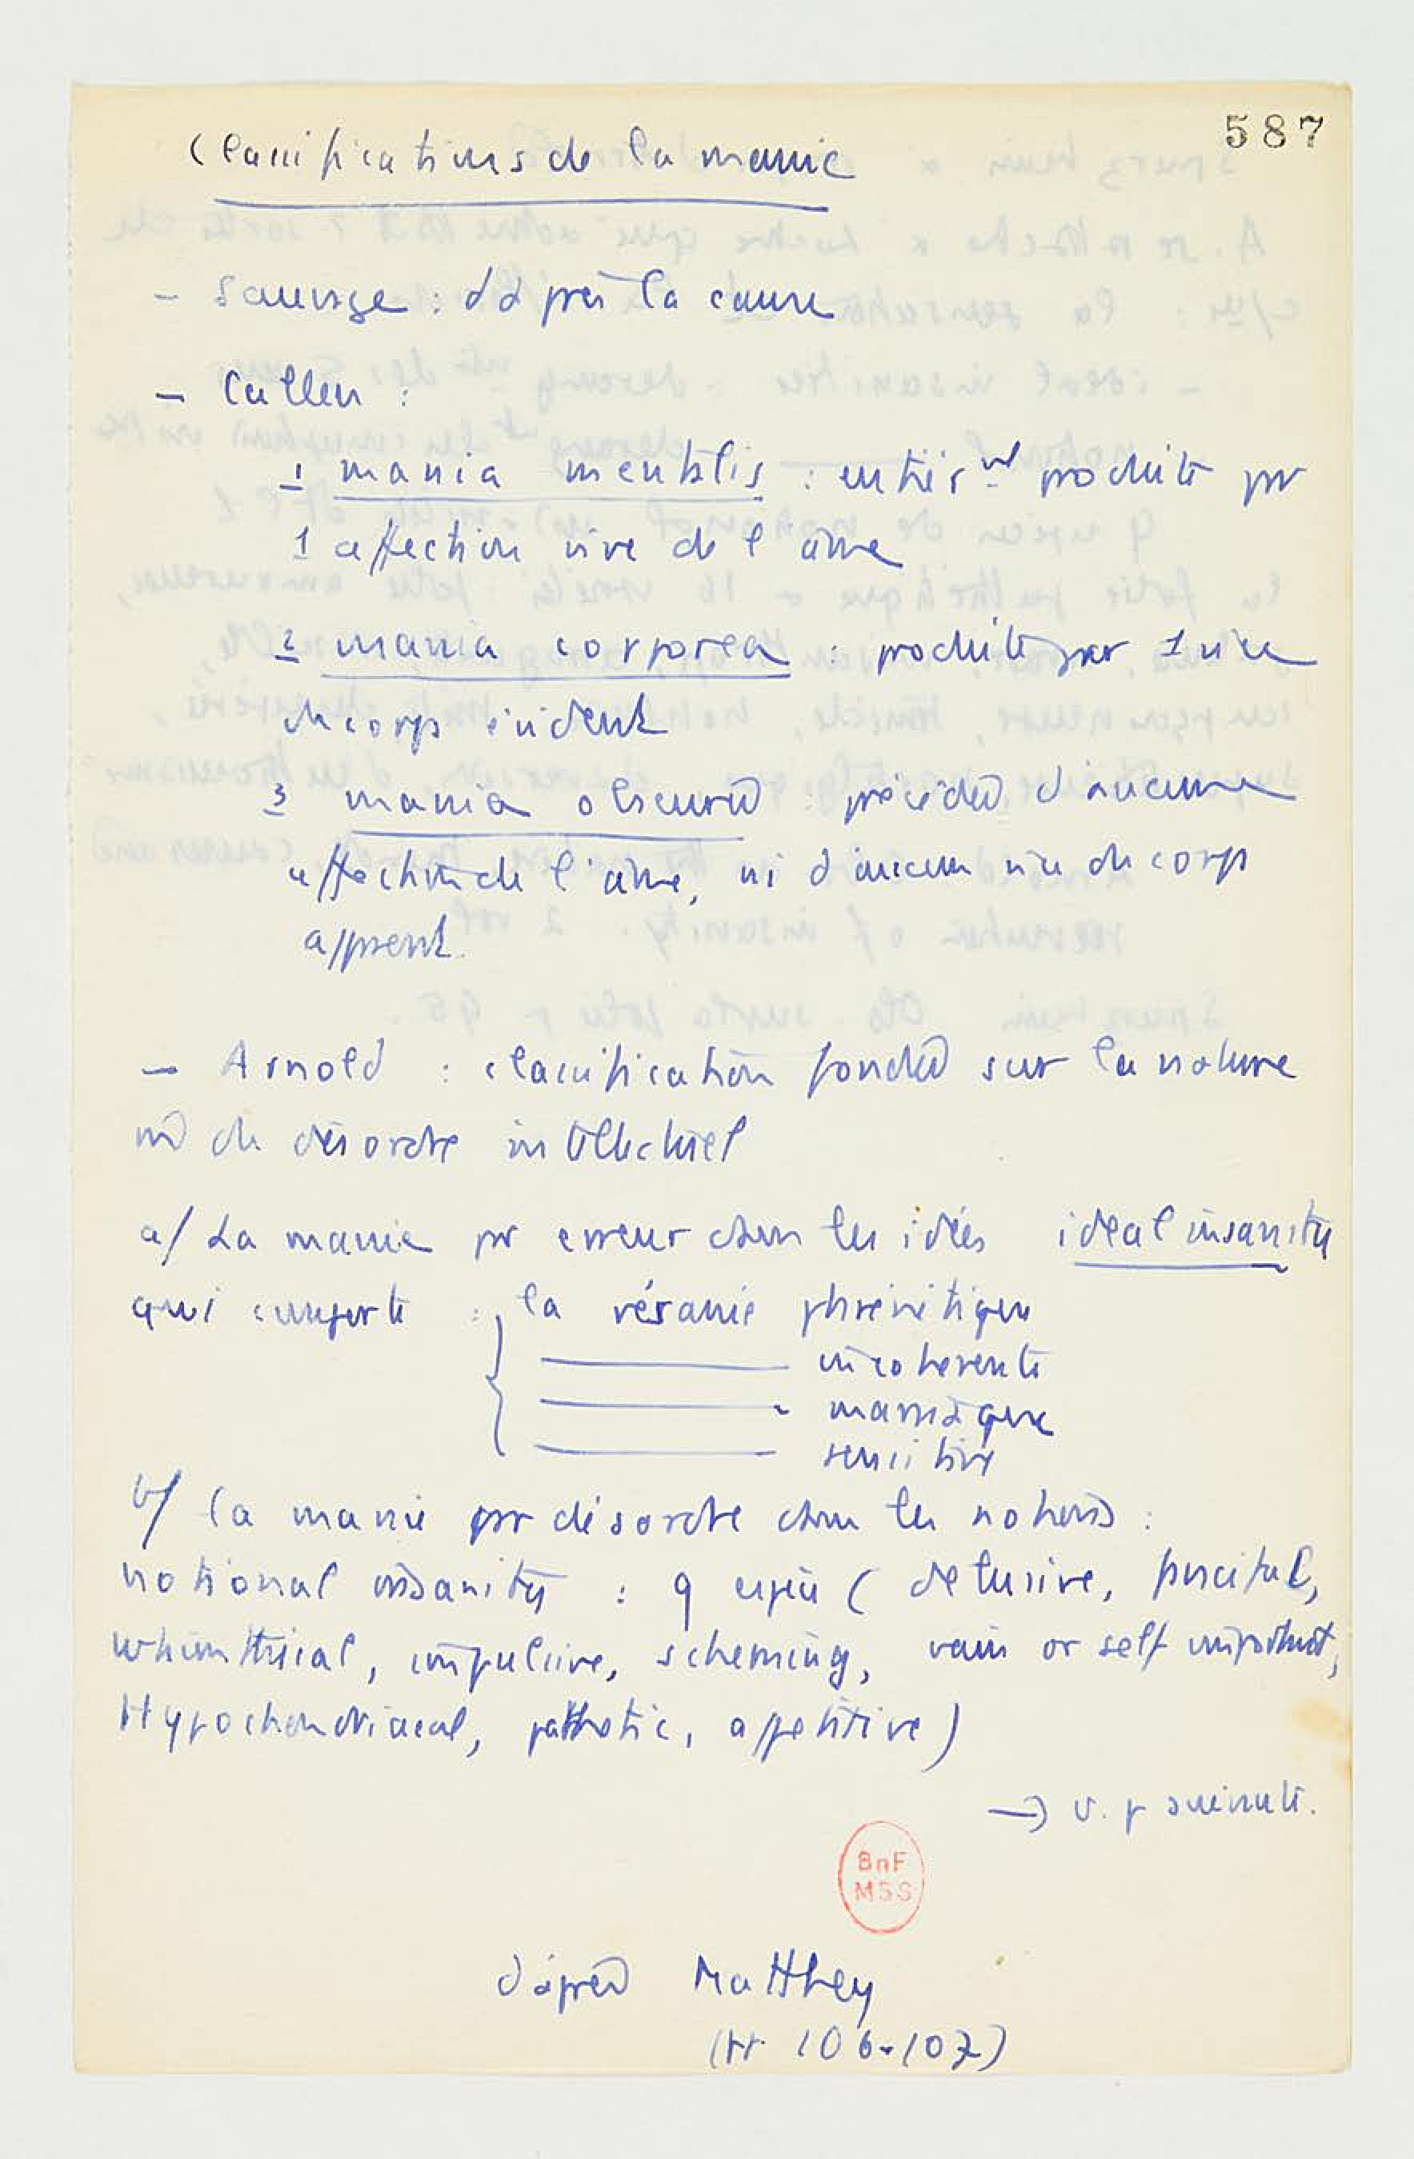 587
Classifications de la manie
- Sauvage : d'après la cause
- Cullen :
1 mania mentalis : entièrnt produite pr
1 affection vive de l'âme
2 mania corporea : produite par 1 vice
du corps évident
3 mania obscura : précédée d'aucune
affection de l'âme, ni d'aucun vice du corps
apparent.
- Arnold : classification fondée sur la nature
m̂ du désordre intellectuel
a/ La manie pr erreur dans les idées ideal insanity
qui comporte : la vésanie phrénitique
incohérente
maniaque
sensitive
b/ la manie pr désordre dans les notions :
notional insanity : 9 espèces ( delusive,
whimsical, impulsive, scheming, vain or self important,
Hypochondriacal, pathetic, appetitive )
→ v. p suivante.
BnF
MSS
d'après Matthey
(pp 106-107)